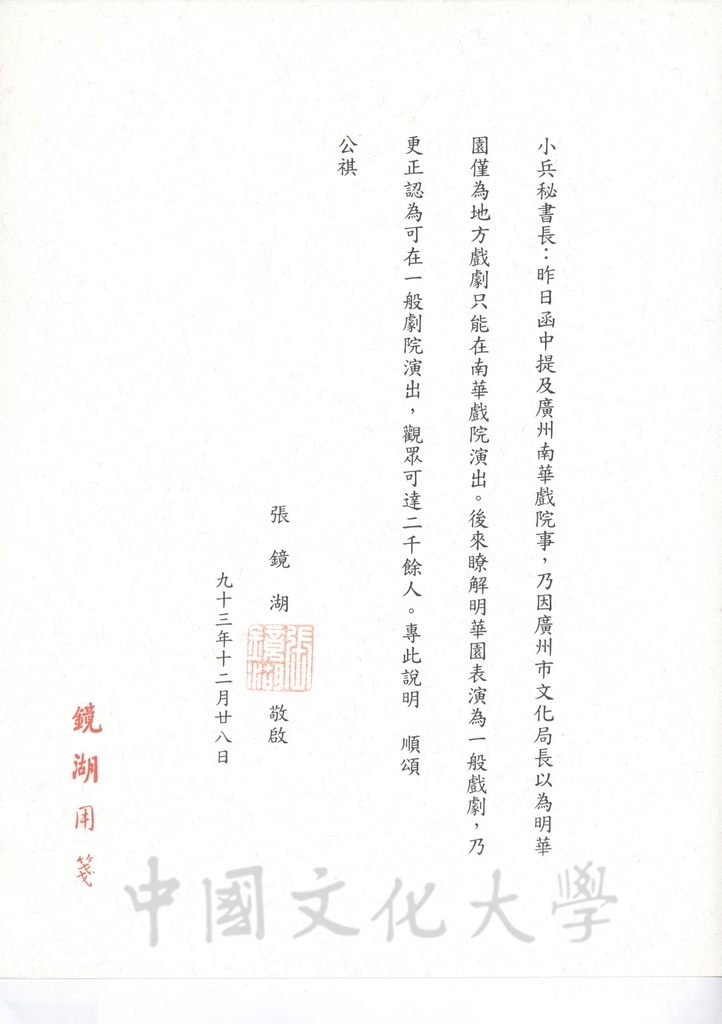 小兵秘書長：昨日函中提及廣州南華戲院事，乃因廣州市文化局長以為明華
園僅為地方戲劇只能在南華戲院演出。後來瞭解明華園表演為一般戲劇，乃
更正認為可在一般劇院演出，觀眾可達二千餘人。專此說明　順頌
公祺
張鏡湖　敬啟
張鏡湖
九十三年十二月廿八日
鏡湖用箋
中國文化大學